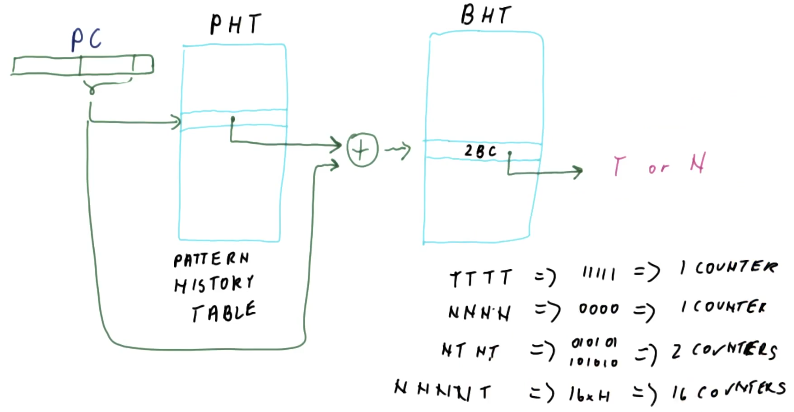 PC
PHT
BHT
+
2BC
T or N
PATTERN
HISTORY
TABLE
TTTT => 11111 => 1 COUNTER
NNNN => 0000 => 1 COUNTER
NTNT => 010101
101010 => 2 COUNTERS
NNNNT => 16xH => 16 COUNTERS